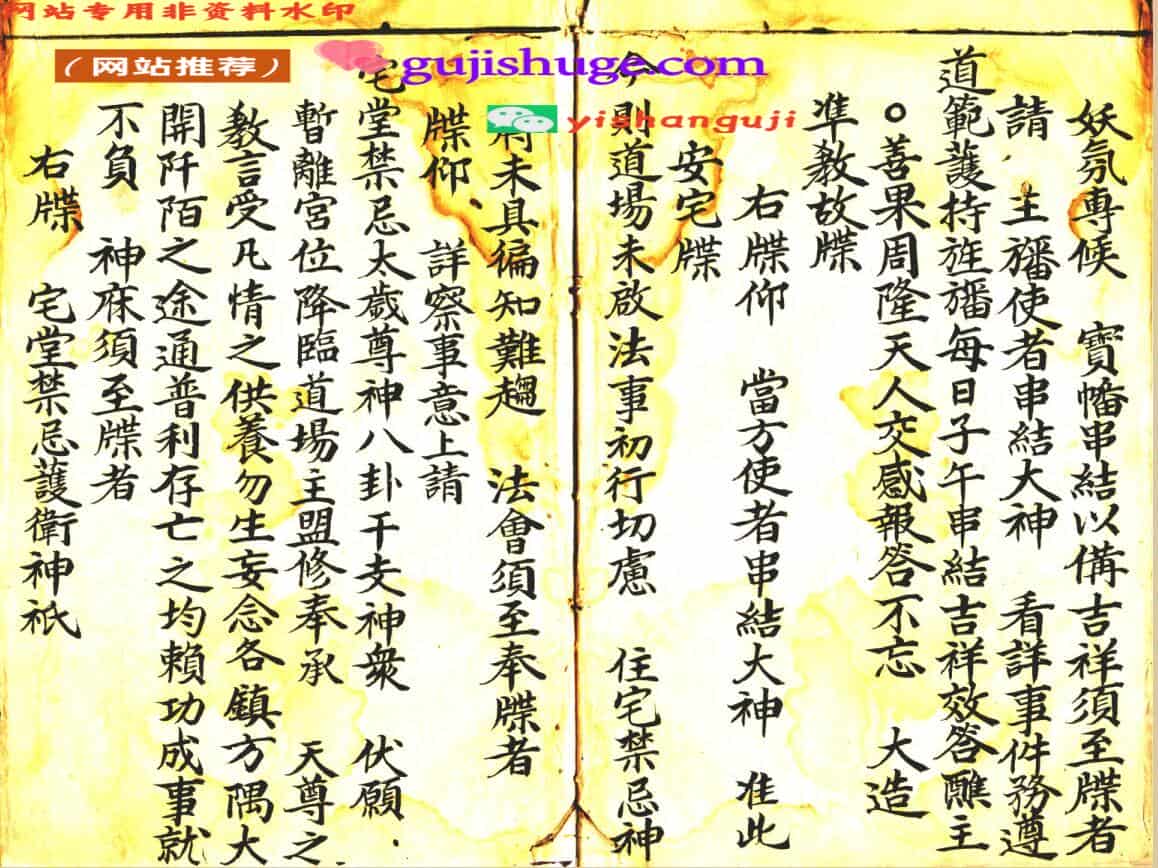 网站专用非资料水印
(网站推荐)
gujishuge.com
yishanguji
妖氛專候 寶幡串結以備吉祥須至牒者
請 主旛使者串結大神 看詳事件務遵
道範護持旌旛每日子午串結吉祥效答醮主
○善果周隆天人交感報答不忘 大造
準教故牒
右牒仰 當方使者串結大神 准此
安宅牒
今則道場未啟法事初行切慮 住宅禁忌神
將未具徧知難趨 法會須至奉牒者
牒仰 詳察事意上請
宅堂禁忌太歲尊神八卦干支神衆 伏願
暫離宮位降臨道場主盟修奉承 天尊之
教言受凡情之供養勿生妄念各鎮方隅大
開阡陌之途通普利存亡之均賴功成事就
不負 神庥須至牒者
右牒 宅堂禁忌護衛神祇